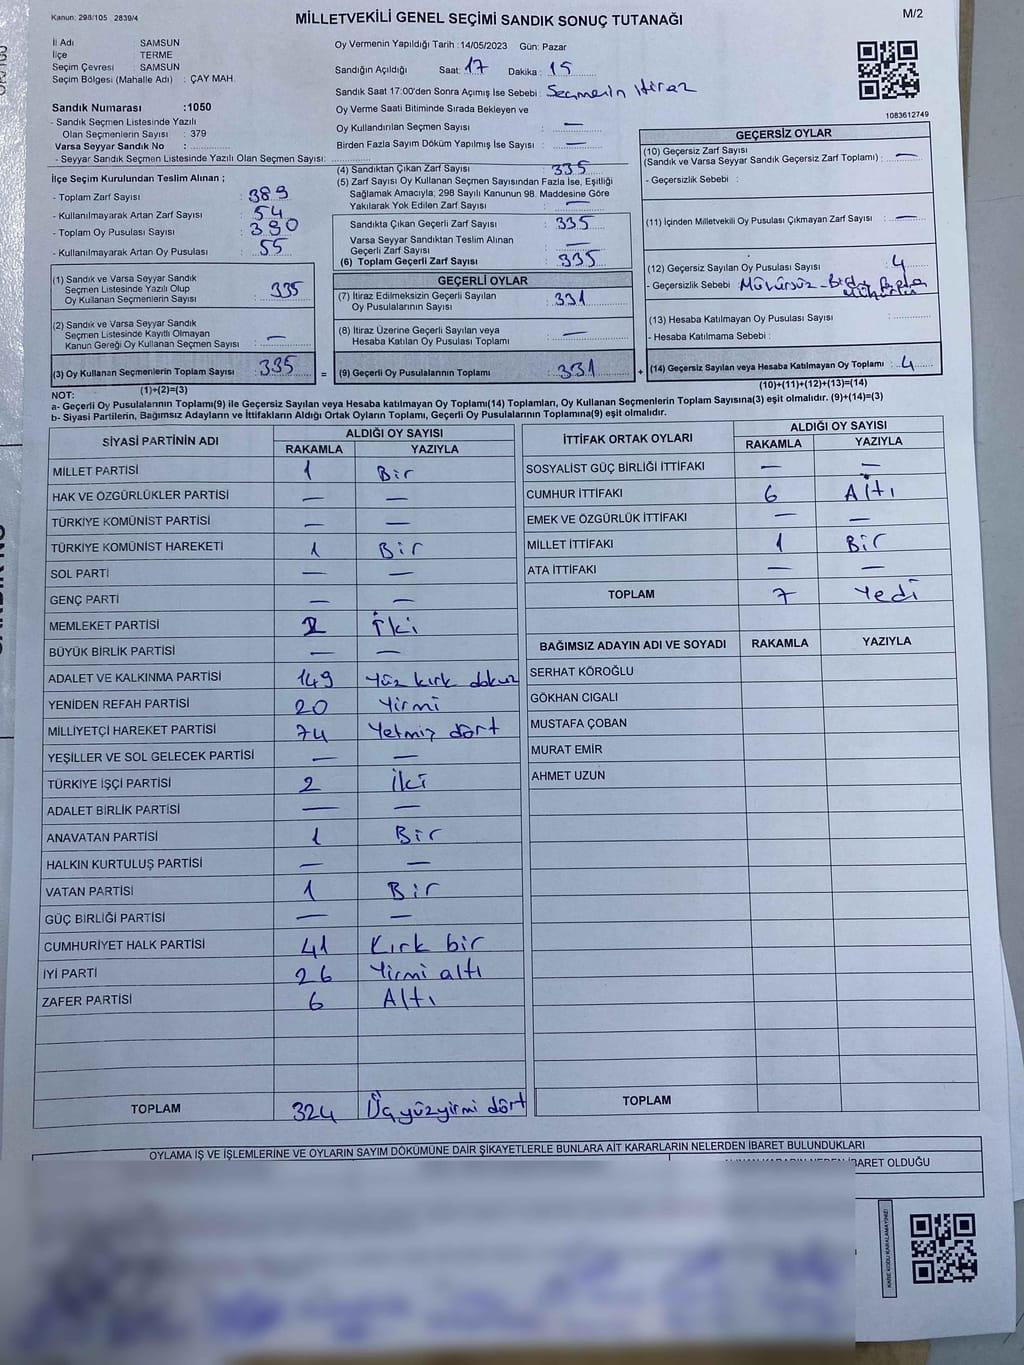 Kanun: 298/105 2839/4
MİLLETVEKİLİ GENEL SEÇİMİ SANDIK SONUÇ TUTANAĞI
M/2
İl Adı SAMSUN
İlçe TERME
Seçim Çevresi : SAMSUN
Seçim Bölgesi (Mahalle Adı) : ÇAY MAH.
Sandık Numarası :1050
- Sandık Seçmen Listesinde Yazılı
Olan Seçmenlerin Sayısı : 379
Varsa Seyyar Sandık No :
- Seyyar Sandık Seçmen Listesinde Yazılı Olan Seçmen Sayısı:
Oy Vermenin Yapıldığı Tarih : 14/05/2023 Gün: Pazar
Sandığın Açıldığı Saat: 17 Dakika : 15
Sandık Saat 17:00'den Sonra Açımış İse Sebebi : Seçmenin itiraz
Oy Verme Saati Bitiminde Sırada Bekleyen ve
Oy Kullandırılan Seçmen Sayısı : —
Birden Fazla Sayım Döküm Yapılmış İse Sayısı : —
1083612749
İlçe Seçim Kurulundan Teslim Alınan ;
- Toplam Zarf Sayısı : 389
- Kullanılmayarak Artan Zarf Sayısı : 54
- Toplam Oy Pusulası Sayısı : 390
- Kullanılmayarak Artan Oy Pusulası : 55
(1) Sandık ve Varsa Seyyar Sandık
Seçmen Listesinde Yazılı Olup
Oy Kullanan Seçmenlerin Sayısı : 335
(2) Sandık ve Varsa Seyyar Sandık
Seçmen Listesinde Kayıtlı Olmayan
Kanun Gereği Oy Kullanan Seçmen Sayısı : —
(3) Oy Kullanan Seçmenlerin Toplam Sayısı : 335
(4) Sandıktan Çıkan Zarf Sayısı : 335
(5) Zarf Sayısı Oy Kullanan Seçmen Sayısından Fazla İse, Eşitliği
Sağlamak Amacıyla; 298 Sayılı Kanunun 98. Maddesine Göre
Yakılarak Yok Edilen Zarf Sayısı : —
Sandıkta Çıkan Geçerli Zarf Sayısı : 335
Varsa Seyyar Sandıktan Teslim Alınan
Geçerli Zarf Sayısı : —
(6) Toplam Geçerli Zarf Sayısı : 335
GEÇERLİ OYLAR
(7) İtiraz Edilmeksizin Geçerli Sayılan
Oy Pusulalarının Sayısı : 331
(8) İtiraz Üzerine Geçerli Sayılan veya
Hesaba Katılan Oy Pusulası Toplamı : —
= (9) Geçerli Oy Pusulalarının Toplamı : 331
GEÇERSİZ OYLAR
(10) Geçersiz Zarf Sayısı
(Sandık ve Varsa Seyyar Sandık Geçersiz Zarf Toplamı) : —
- Geçersizlik Sebebi :
(11) İçinden Milletvekili Oy Pusulası Çıkmayan Zarf Sayısı : —
(12) Geçersiz Sayılan Oy Pusulası Sayısı : 4
- Geçersizlik Sebebi : Mühürsüz - Birden Fazla
Mühürlü
(13) Hesaba Katılmayan Oy Pusulası Sayısı :
- Hesaba Katılmama Sebebi :
+ (14) Geçersiz Sayılan veya Hesaba Katılmayan Oy Toplamı : 4
(1)+(2)=(3)
(10)+(11)+(12)+(13)=(14)
NOT:
a- Geçerli Oy Pusulalarının Toplamı(9) ile Geçersiz Sayılan veya Hesaba katılmayan Oy Toplamı(14) Toplamları, Oy Kullanan Seçmenlerin Toplam Sayısına(3) eşit olmalıdır. (9)+(14)=(3)
b- Siyasi Partilerin, Bağımsız Adayların ve İttifakların Aldığı Ortak Oyların Toplamı, Geçerli Oy Pusulalarının Toplamına(9) eşit olmalıdır.
SİYASİ PARTİNİN ADI ALDIĞI OY SAYISI
RAKAMLA YAZIYLA
MİLLET PARTİSİ 1 Bir
HAK VE ÖZGÜRLÜKLER PARTİSİ — —
TÜRKİYE KOMÜNİST PARTİSİ — —
TÜRKİYE KOMÜNİST HAREKETİ 1 Bir
SOL PARTİ — —
GENÇ PARTİ — —
MEMLEKET PARTİSİ 2 İki
BÜYÜK BİRLİK PARTİSİ — —
ADALET VE KALKINMA PARTİSİ 149 Yüz kırk dokuz
YENİDEN REFAH PARTİSİ 20 Yirmi
MİLLİYETÇİ HAREKET PARTİSİ 74 Yetmiş dört
YEŞİLLER VE SOL GELECEK PARTİSİ — —
TÜRKİYE İŞÇİ PARTİSİ 2 İki
ADALET BİRLİK PARTİSİ — —
ANAVATAN PARTİSİ 1 Bir
HALKIN KURTULUŞ PARTİSİ — —
VATAN PARTİSİ 1 Bir
GÜÇ BİRLİĞİ PARTİSİ — —
CUMHURİYET HALK PARTİSİ 41 Kırk bir
İYİ PARTİ 26 Yirmi altı
ZAFER PARTİSİ 6 Altı
TOPLAM 324 Üçyüzyirmi dört
İTTİFAK ORTAK OYLARI ALDIĞI OY SAYISI
RAKAMLA YAZIYLA
SOSYALİST GÜÇ BİRLİĞİ İTTİFAKI — —
CUMHUR İTTİFAKI 6 Altı
EMEK VE ÖZGÜRLÜK İTTİFAKI — —
MİLLET İTTİFAKI 1 Bir
ATA İTTİFAKI — —
TOPLAM 7 Yedi
BAĞIMSIZ ADAYIN ADI VE SOYADI RAKAMLA YAZIYLA
SERHAT KÖROĞLU
GÖKHAN CIGALI
MUSTAFA ÇOBAN
MURAT EMİR
AHMET UZUN
TOPLAM
OYLAMA İŞ VE İŞLEMLERİNE VE OYLARIN SAYIM DÖKÜMÜNE DAİR ŞİKAYETLERLE BUNLARA AİT KARARLARIN NELERDEN İBARET BULUNDUKLARI
İBARET OLDUĞU
KARE KODU KARALAMAYINIZ!